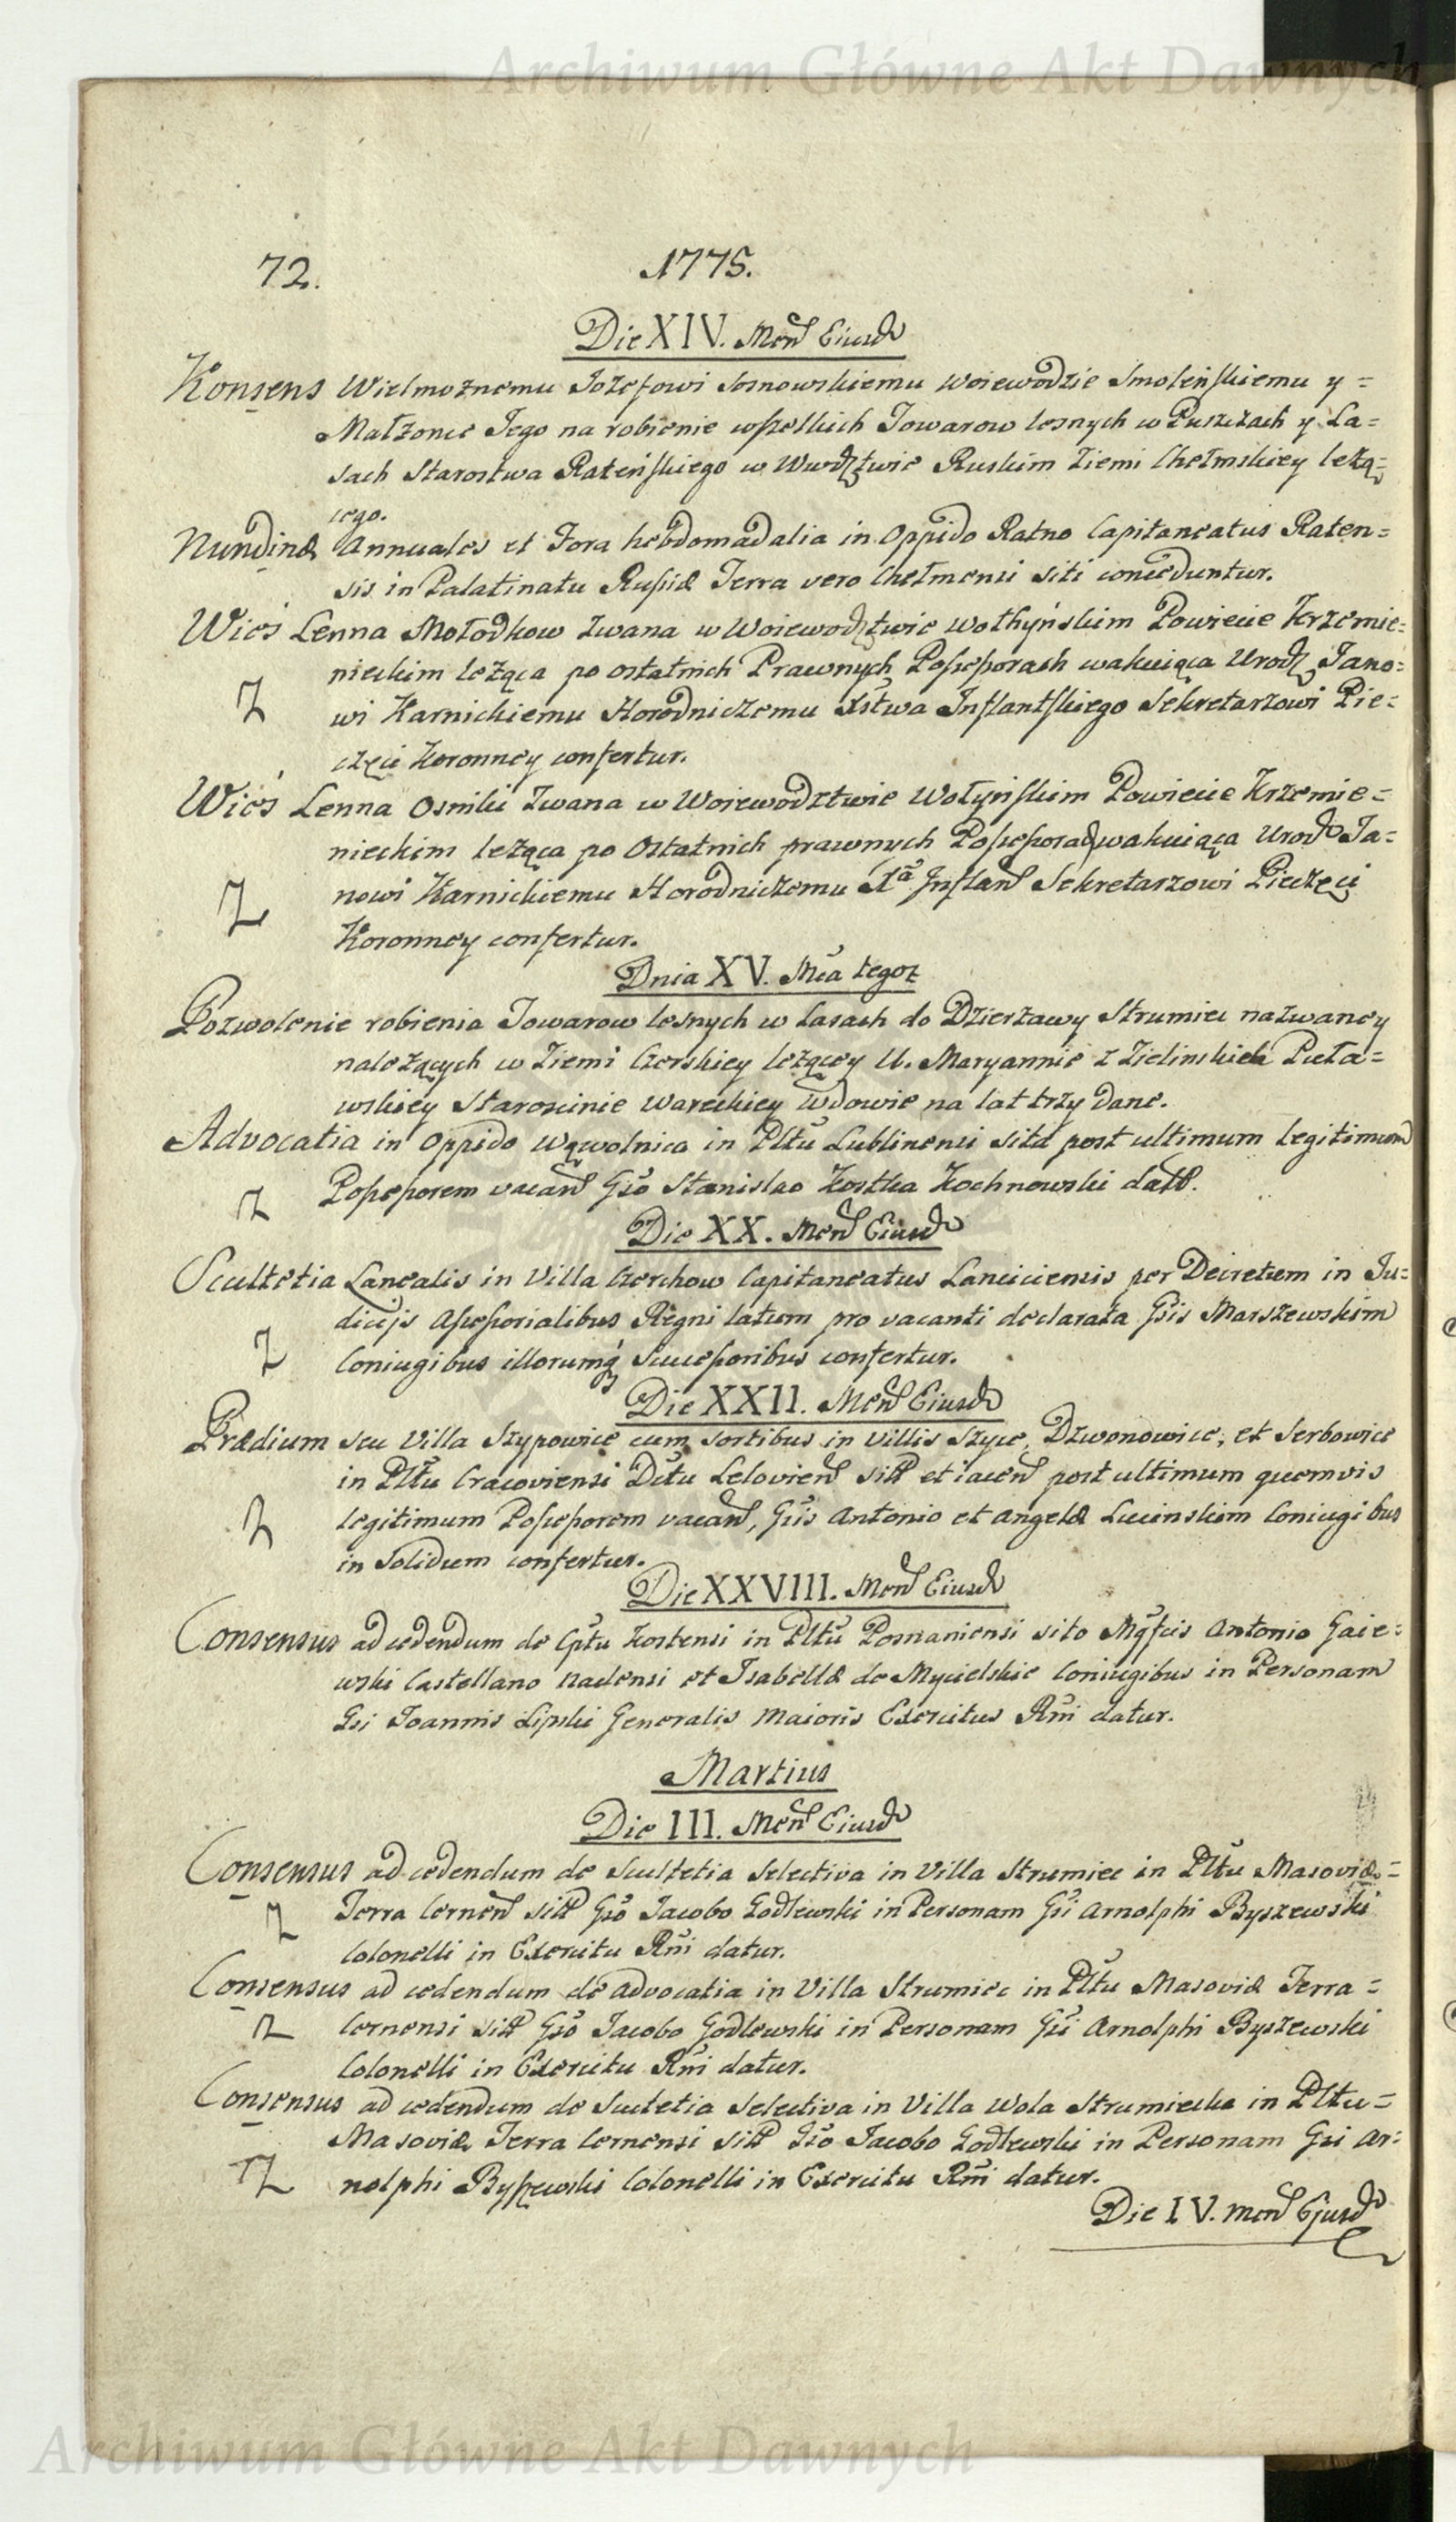 Archiwum Główne Akt Dawnych
72. 1775.
Die XIV. Men Eiusd
Konsens Wielmożnemu Jozefowi Sosnowskiemu Woiewodzie Smoleńskiemu y =
Małzonce Jego na robienie wszelkich Towarow lesnych w Puszczach y La=
sach Starostwa Rateńskiego w Wwdztwie Ruskim Ziemi Chełmskiey leżą=
cego.
Nundinæ Annuales et Fora hebdomadalia in Oppido Ratno Capitaneatus Raten=
sis in Palatinatu Russiæ Terra vero Chełmensi siti conceduntur.
Wieś Lenna Mołodkow zwana w Woiewodztwie Wołhyńskim Powiecie Krzemie=
nieckim leżąca po ostatnich Prawnych Possessorach wakuiąca Urodz Jano=
Z wi Karnickiemu Horodniczemu Xstwa Inflantskiego Sekretarzowi Pie=
częci Koronney confertur.
Wieś Lenna Osniki zwana w Woiewodztwie Wołyńskim Powiecie Krzemie=
nieckim leżąca po Ostatnich prawnych Possessorach wakuiąca Urod Ja=
Z nowi Karnickiemu Horodniczemu Xa Inflan Sekretarzowi Pieczęci
Koronney confertur.
Dnia XV. Mca tegoz
Pozwolenie robienia Towarow lesnych w Lasach do Dzierżawy Strumiec nazwaney
należących w Ziemi Czerskiey leżącey U. Maryannie z Zielinskich Puła=
wskiey Starościnie Wareckiey Wdowie na lat trzy dane.
Advocatia in Oppido Wąwolnica in Pltu Lublinensi sita post ultimum legitimum
Z Possessorem vacan Gso Stanislao Kostka Kochnowski datt.
Die XX. Men Eiusd
Scultetia Lanealis in Villa Czerchow Capitaneatus Lanciciensis per Decretum in Ju=
dicijs Assessorialibus Regni latum pro vacanti declarata Gsis Marszewskim
Z Coniugibus illorumq Successoribus confertur.
Die XXII. Men Eiusd
Prædium seu Villa Szypowice cum sortibus in Villis Szyce, Dzwonowice, et Serbowice
in Pltu Cracoviensi Dctu Lelovien sitt et iacen post ultimum quemvis
Z legitimum Possessorem vacan, Gsis Antonio et Angelæ Lucinskim Coniugibus
in Solidum confertur.
Die XXVIII. Men Eiusd
Consensus ad cedendum de Cptu Kostensi in Pltu Posnaniensi sito Mgfcis Antonio Gaie=
wski Castellano Naclensi et Isabellæ de Mycielskie Coniugibus in Personam
Gsi Joannis Lipski Generalis Maioris Exercitus Rni datur.
Martius
Die III. Men Eiusd
Consensus ad cedendum de Scultetia Selectiva in Villa Strumiec in Pltu Masoviæ=
Z Terra Cernen sitt Gso Jacobo Godlewski in Personam Gsi Arnolphi Byszewski
Colonelli in Exercitu Rni datur.
Consensus ad cedendum de Advocatia in Villa Strumiec in Pltu Masoviæ Terra =
Z Cernensi sitt Gso Jacobo Godlewski in Personam Gsi Arnolphi Byszewski
Colonelli in Exercitu Rni datur.
Consensus ad cedendum de Scultetia Selectiva in Villa Wola Strumiecka in Pltu=
Masoviæ Terra Cernensi sitt Gso Jacobo Godlewski in Personam Gsi Ar=
Z nolphi Byszewski Colonelli in Exercitu Rni datur.
Die IV. Men Ejusd
Archiwum Główne Akt Dawnych